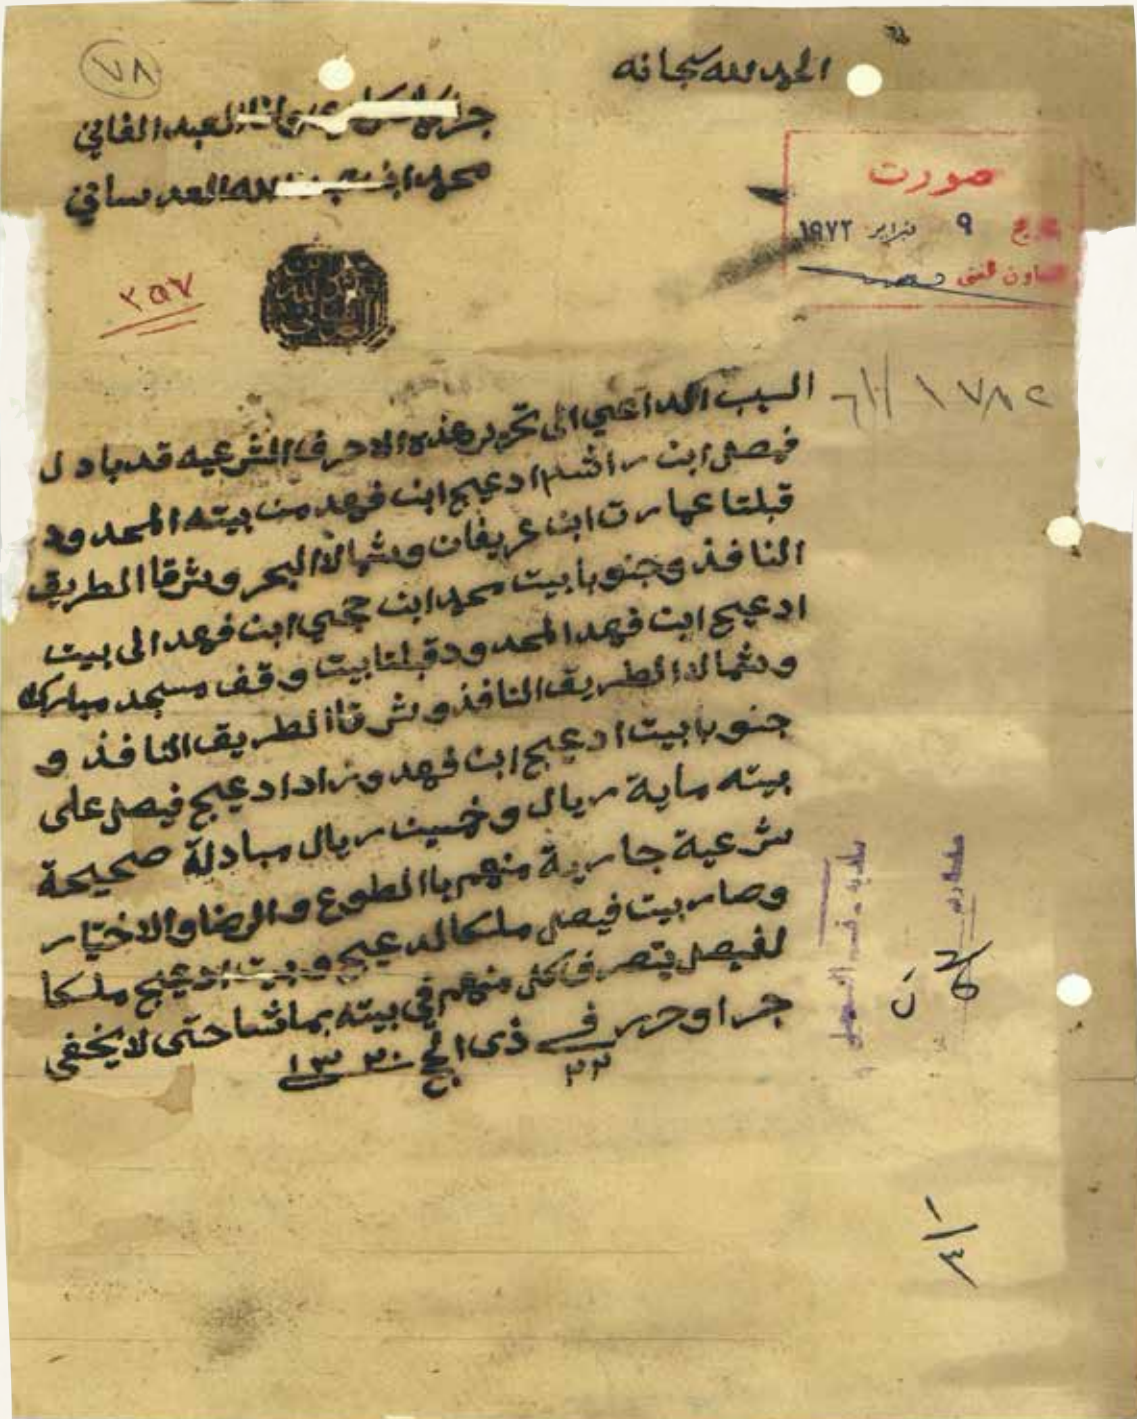 الحمد لله سبحانه
٧٨
العبد الفاني
محمد ابن عبد الله العدساني
صورت
٩ فبراير ١٩٧٢
التعاون الفني
٢٥٧
السبب الداعي الى تحرير هذه الاحرف الشرعيه قد بادل
فيصل ابن راشد ادعيج ابن فهد من بيته المحدود
قبلتا عمارت ابن عريفان وشمالا البحر وشرقا الطريق
النافذ وجنوبا بيت محمد ابن حجي ابن فهد الى بيت
ادعيج ابن فهد المحدود قبلتا بيت وقف مسجد مبارك
وشمالا الطريق النافذ وشرقا الطريق النافذ و
جنوبا بيت ادعيج ابن فهد وزاد ادعيج فيصل على
بيته ماية ريال وخمسين ريال مبادلة صحيحة
شرعية جارية منهم باالطوع والرضا والاختيار
وصار بيت فيصل ملكا لدعيج وبيت ادعيج ملكا
لفيصل يتصرف كل منهم في بيته بماشا حتى لا يخفى
جرا وحرر في ٢٣ ذى الحج ١٣٣٠